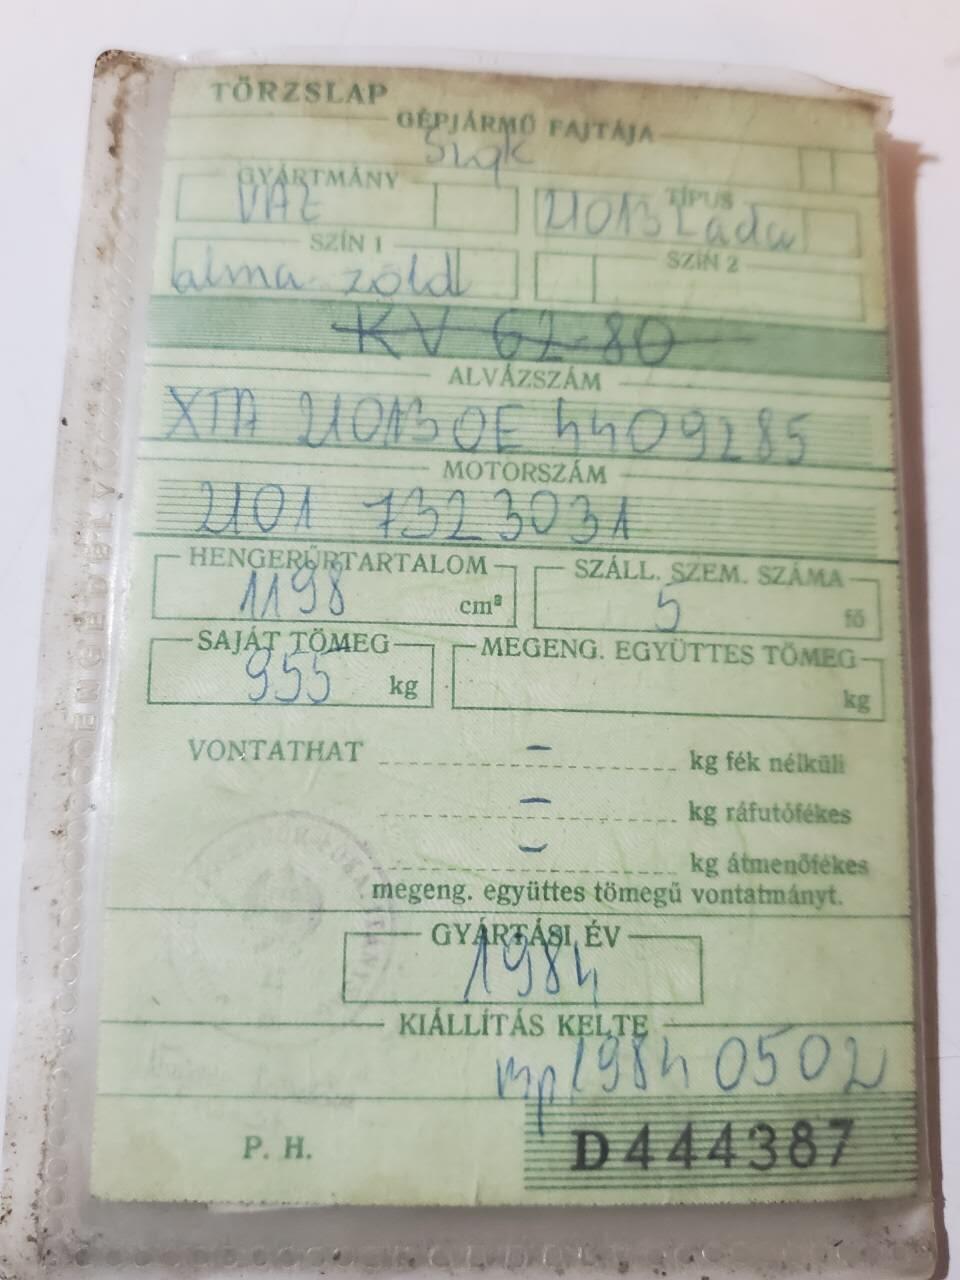 TÖRZSLAP
GÉPJÁRMŰ FAJTÁJA
Szgk
GYÁRTMÁNY TÍPUS
VAZ 21013 Lada
SZÍN 1 SZÍN 2
alma zöld
KV 62-80
ALVÁZSZÁM
XTA 210130E 4409285
MOTORSZÁM
2101 7323031
HENGERŰRTARTALOM SZÁLL. SZEM. SZÁMA
1198 cm³ 5 fő
SAJÁT TÖMEG MEGENG. EGYÜTTES TÖMEG
955 kg kg
VONTATHAT – kg fék nélküli
– kg ráfutófékes
– kg átmenőfékes
megeng. együttes tömegű vontatmányt.
GYÁRTÁSI ÉV
1984
KIÁLLÍTÁS KELTE
Bp 1984 05 02
P. H. D 444387